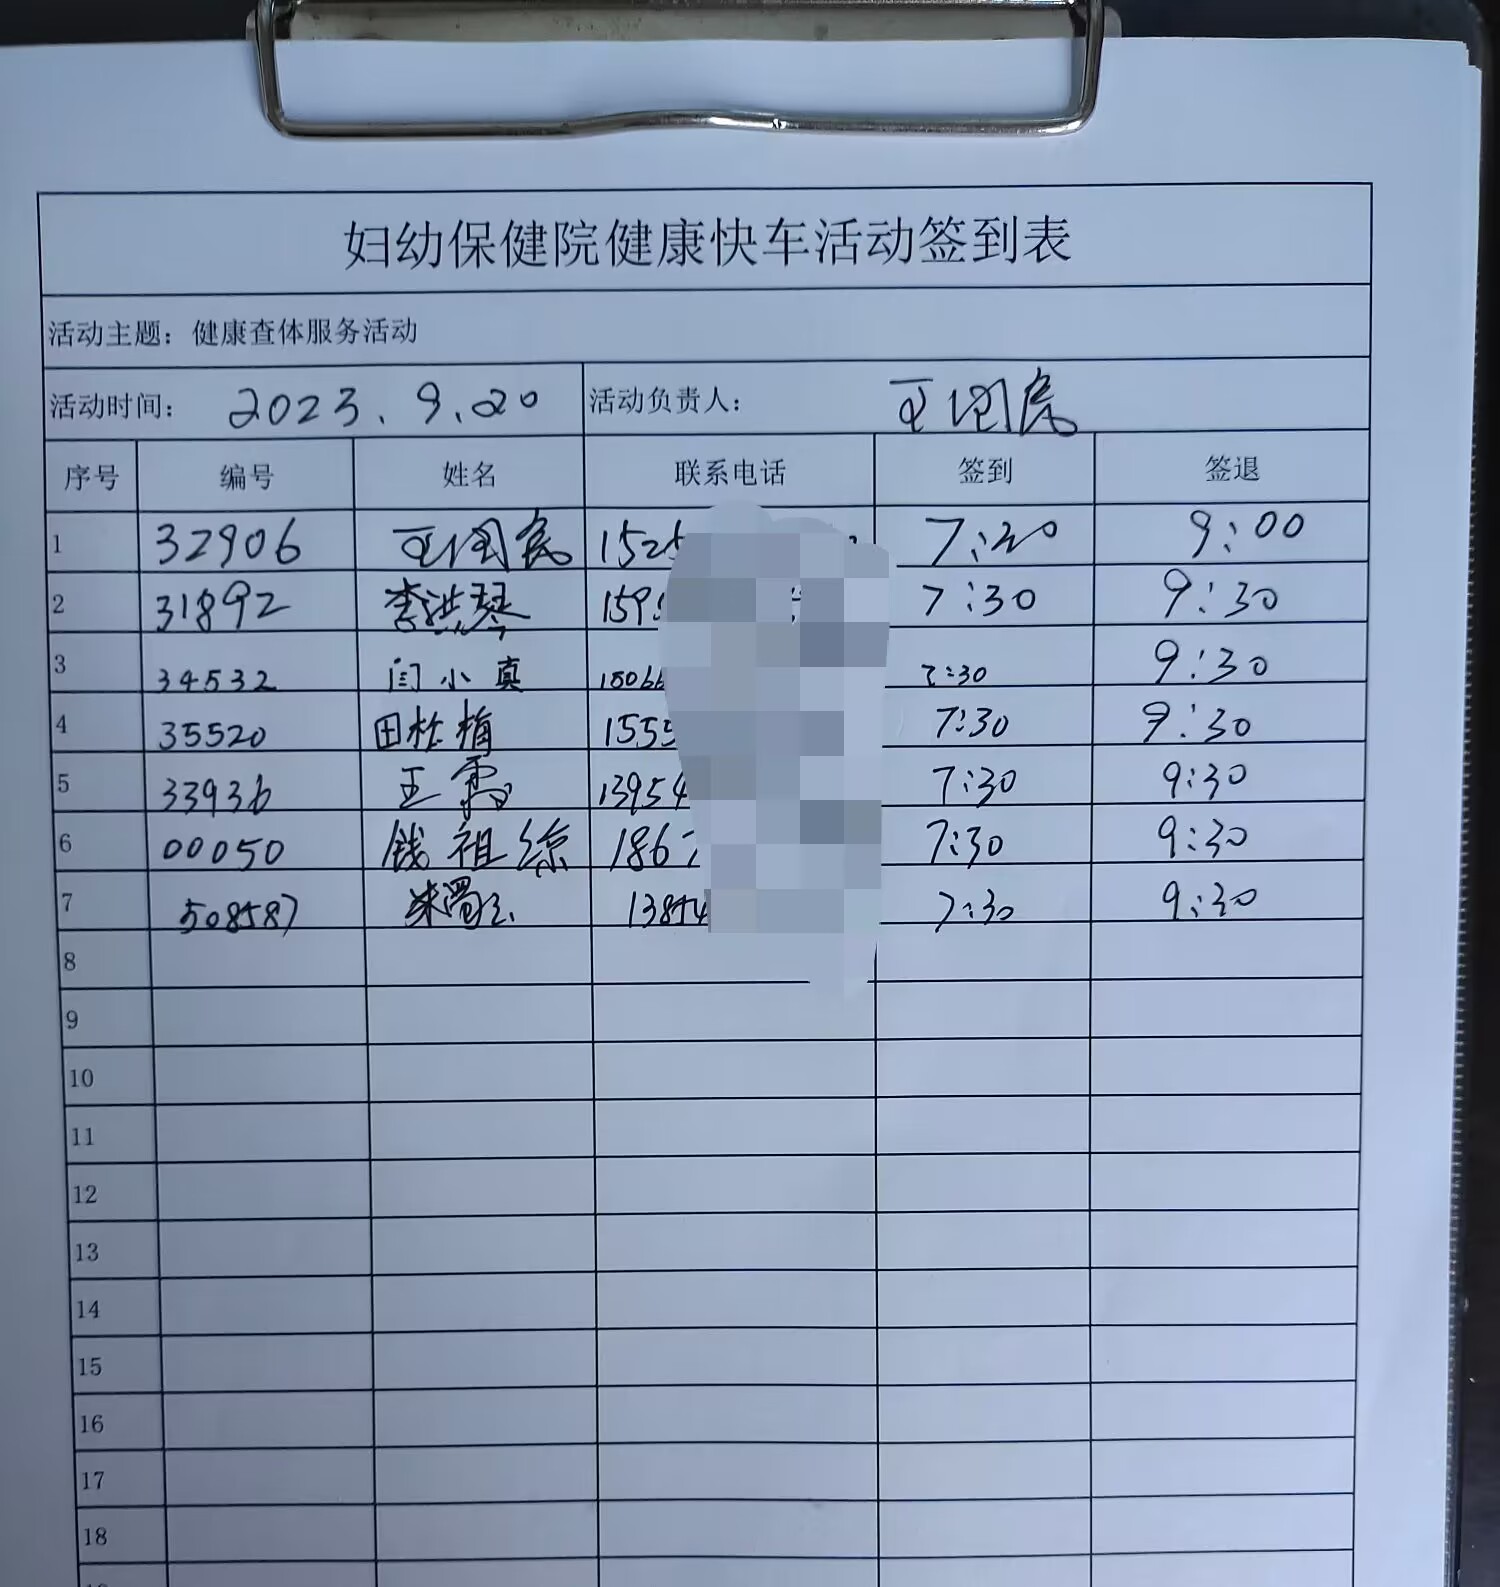 妇幼保健院健康快车活动签到表
活动主题：健康查体服务活动
活动时间： 2023.9.20 活动负责人： 王国亮
序号 编号 姓名 联系电话 签到 签退
1 32906 1525 7:20 9:00
2 31892 李洪琴 159 7:30 9:30
3 34532 闫小真 15066 7:30 9:30
4 35520 田桂梅 1555 7:30 9:30
5 33936 王霞 13954 7:30 9:30
6 00050 钱祖综 1867 7:30 9:30
7 508587 13854 7:30 9:30
8
9
10
11
12
13
14
15
16
17
18